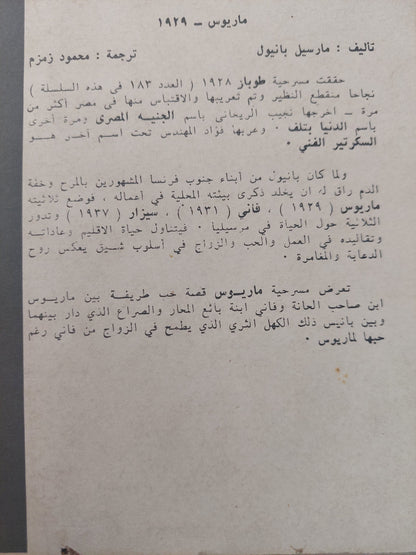 ماريوس - ١٩٢٩
تاليف : مارسيل بانيول ترجمة : محمود زمزم
حققت مسرحية طوباز ١٩٢٨ ( العدد ١٨٣ فى هذه السلسلة )
نجاحا منقطع النظير وتم تعريبها والاقتباس منها فى مصر أكثر من
مرة - اخرجها نجيب الريحانى باسم الجنيه المصرى ومرة أخرى
باسم الدنيا بتلف . وعربها فؤاد المهندس تحت اسم آخر هو
السكرتير الفني .
ولما كان بانيول من أبناء جنوب فرنسا المشهورين بالمرح وخفة
الدم راق له أن يخلد ذكرى بيئته المحلية في أعماله ، فوضع ثلاثيته
ماريوس ( ١٩٢٩ ) ، فاني ( ١٩٣١ ) ، سيزار ( ١٩٣٧ ) وتدور
الثلاثية حول الحياة في مرسيليا . فيتناول حياة الاقليم وعاداته
وتقاليده في العمل والحب والزواج في أسلوب شيق يعكس روح
الدعابة والمغامرة .
تعرض مسرحية ماريوس قصة حب طريفة بين ماريوس
ابن صاحب الحانة وفاني ابنة بائع المحار والصراع الذي دار بينهما
وبين بانيس ذلك الكهل الثري الذي يطمح في الزواج من فاني رغم
حبها لماريوس .